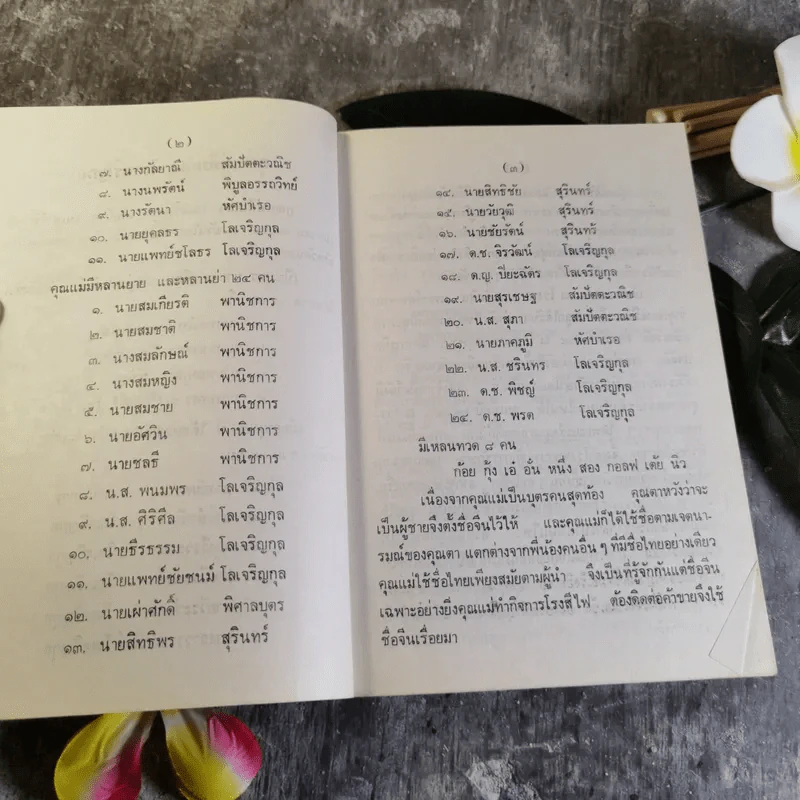 (๒)
๗. นางกัลยาณี สัมปัตตะวณิช
๘. นางนพรัตน์ พิบูลอรรถวิทย์
๙. นางรัตนา หัศบำเรอ
๑๐. นายยุคลธร โลเจริญกุล
๑๑. นายแพทย์ชโลธร โลเจริญกุล
คุณแม่มีหลานยาย และหลานย่า ๒๔ คน
๑. นายสมเกียรติ พานิชการ
๒. นายสมชาติ พานิชการ
๓. นางสมลักษณ์ พานิชการ
๔. นางสมหญิง พานิชการ
๕. นายสมชาย พานิชการ
๖. นายอัศวิน พานิชการ
๗. นายชลธี พานิชการ
๘. น.ส. พนมพร โลเจริญกุล
๙. น.ส. ศิริศีล โลเจริญกุล
๑๐. นายธีรธรรม โลเจริญกุล
๑๑. นายแพทย์ชัยชนม์ โลเจริญกุล
๑๒. นายเผ่าศักดิ์ พิศาลบุตร
๑๓. นายสิทธิพร สุรินทร์
(๓)
๑๔. นายสิทธิชัย สุรินทร์
๑๕. นายวัยวุฒิ สุรินทร์
๑๖. นายชัยรัตน์ สุรินทร์
๑๗. ด.ช. จิรวัฒน์ โลเจริญกุล
๑๘. ด.ญ. ปิยะฉัตร โลเจริญกุล
๑๙. นายสุรเชษฐ สัมปัตตะวณิช
๒๐. น.ส. สุภา สัมปัตตะวณิช
๒๑. นายภาคภูมิ หัศบำเรอ
๒๒. น.ส. ชรินทร โลเจริญกุล
๒๓. ด.ช. พิชญ์ โลเจริญกุล
๒๔. ด.ช. พรต โลเจริญกุล
มีเหลนทวด ๘ คน
ก้อย กุ้ง เอ๋ อั๋น หนึ่ง สอง กอลฟ เต้ย นิว
เนื่องจากคุณแม่เป็นบุตรคนสุดท้อง คุณตาหวังว่าจะ
เป็นผู้ชายจึงตั้งชื่อจีนไว้ให้ และคุณแม่ก็ได้ใช้ชื่อตามเจตนา-
รมณ์ของคุณตา แตกต่างจากพี่น้องคนอื่น ๆ ที่มีชื่อไทยอย่างเดียว
คุณแม่ใช้ชื่อไทยเพียงสมัยตามผู้นำ จึงเป็นที่รู้จักกันแต่ชื่อจีน
เฉพาะอย่างยิ่งคุณแม่ทำกิจการโรงสีไฟ ต้องติดต่อค้าขายจึงใช้
ชื่อจีนเรื่อยมา